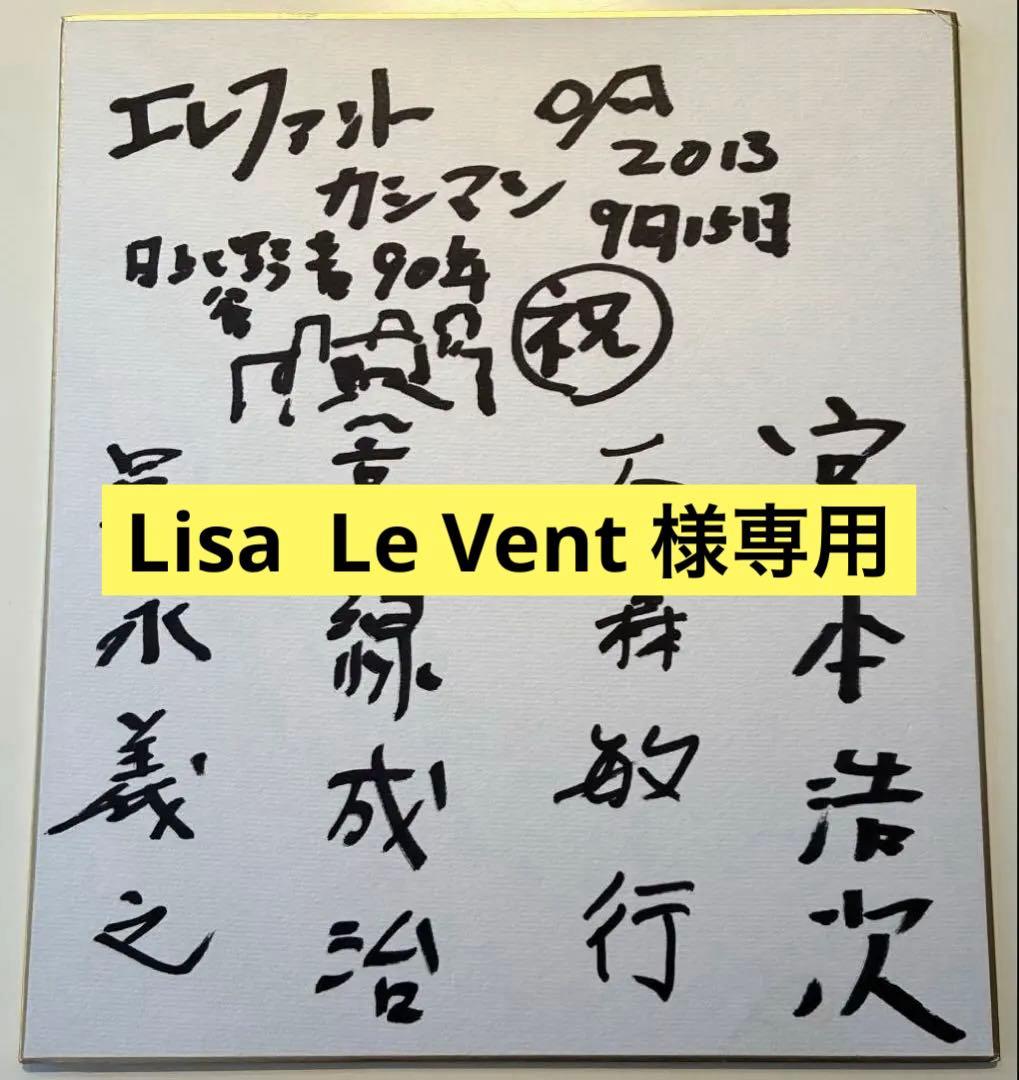 エレファント
カシマシ
2013
9月15日
日比谷野音90年
祝
宮本浩次
石森敏行
高緑成治
冨永義之
Lisa Le Vent 様専用